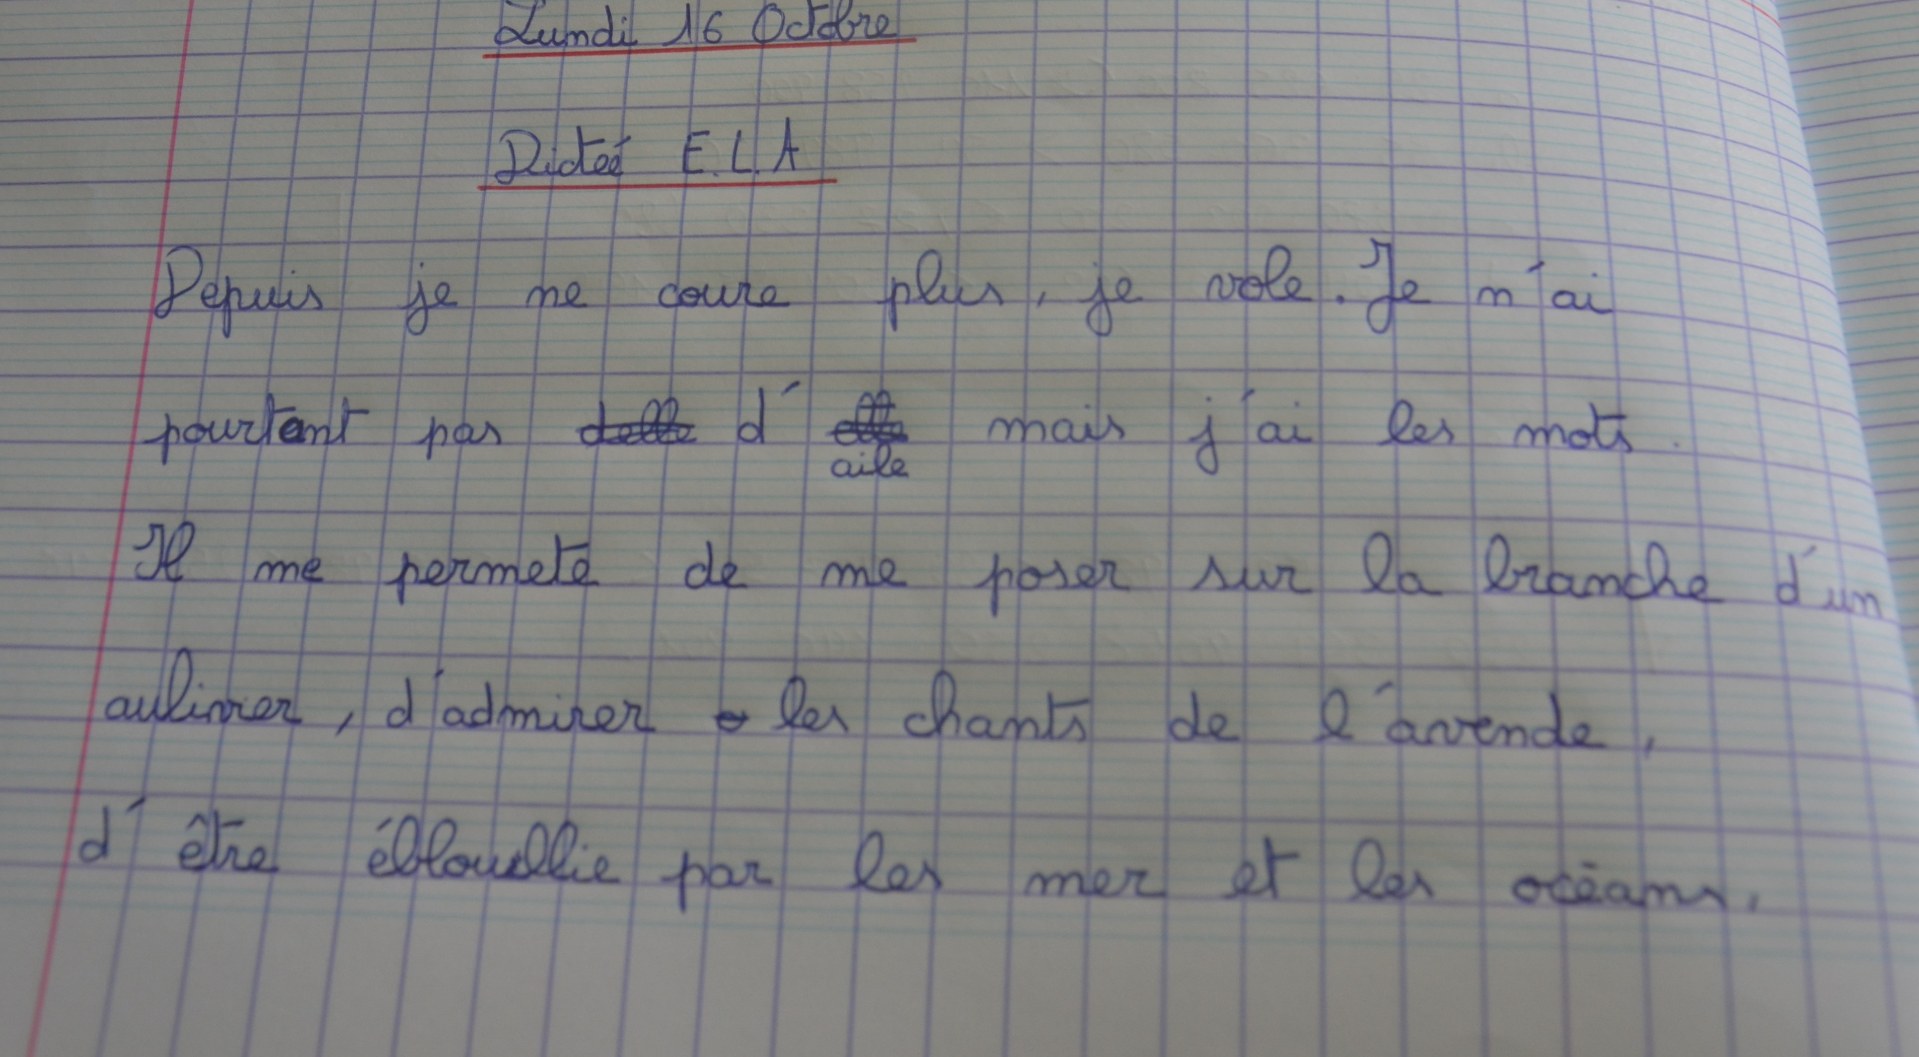 Lundi 16 Octobre
Dicteé E.L.A
Depuis je ne coure plus, je vole. Je n'ai
pourtant pas d' aile mais j'ai les mots.
Il me permete de me poser sur la branche d'un
aulivier, d'admirer les chants de l'avende,
d'être éblouillie par les mer et les océans,